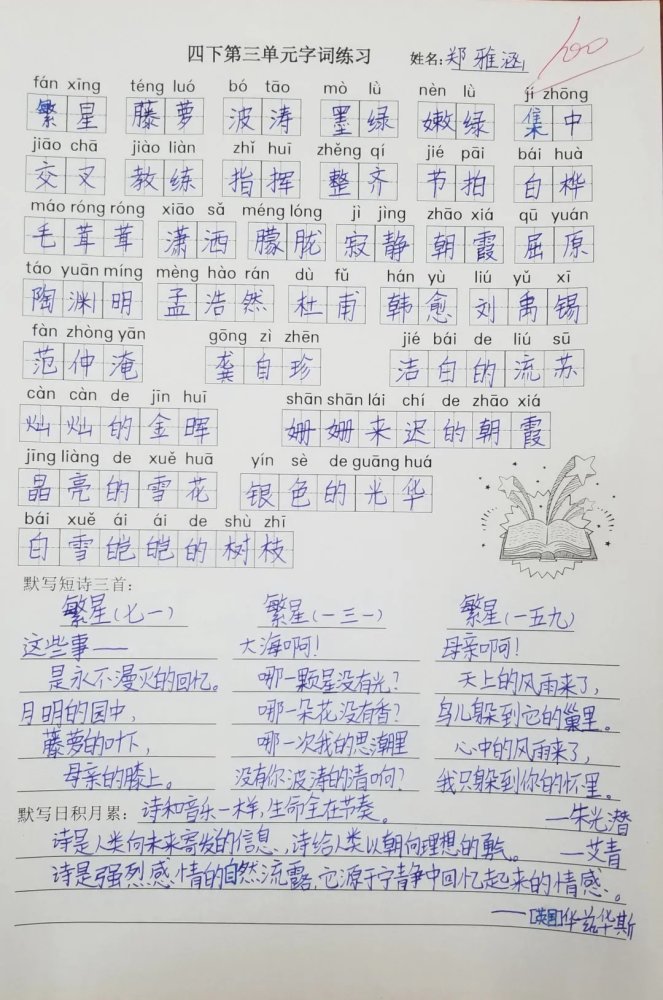 四下第三单元字词练习 姓名:郑雅涵 100
fán xīng téng luó bó tāo mò lǜ nèn lǜ jí zhōng
繁星 藤萝 波涛 墨绿 嫩绿 集中
jiāo chā jiào liàn zhǐ huī zhěng qí jié pāi bái huà
交叉 教练 指挥 整齐 节拍 白桦
máo róng róng xiāo sǎ méng lóng jì jìng zhāo xiá qū yuán
毛茸茸 潇洒 朦胧 寂静 朝霞 屈原
táo yuān míng mèng hào rán dù fǔ hán yù liú yǔ xī
陶渊明 孟浩然 杜甫 韩愈 刘禹锡
fàn zhòng yān gōng zì zhēn jié bái de liú sū
范仲淹 龚自珍 洁白的流苏
càn càn de jīn huī shān shān lái chí de zhāo xiá
灿灿的金晖 姗姗来迟的朝霞
jīng liàng de xuě huā yín sè de guāng huá
晶亮的雪花 银色的光华
bái xuě ái ái de shù zhī
白雪皑皑的树枝
默写短诗三首:
繁星(七一) 繁星(一三一) 繁星(一五九)
这些事—— 大海啊! 母亲啊!
是永不漫灭的回忆。 哪一颗星没有光? 天上的风雨来了,
月明的园中, 哪一朵花没有香? 鸟儿躲到它的巢里。
藤萝的叶下, 哪一次我的思潮里 心中的风雨来了,
母亲的膝上。 没有你波涛的清响? 我只躲到你的怀里。
默写日积月累: 诗和音乐一样,生命全在节奏。 ——朱光潜
诗是人类向未来寄发的信息,诗给人类以朝向理想的勇气。 ——艾青
诗是强烈感情的自然流露,它源于宁静中回忆起来的情感。
——[英国]华兹华斯